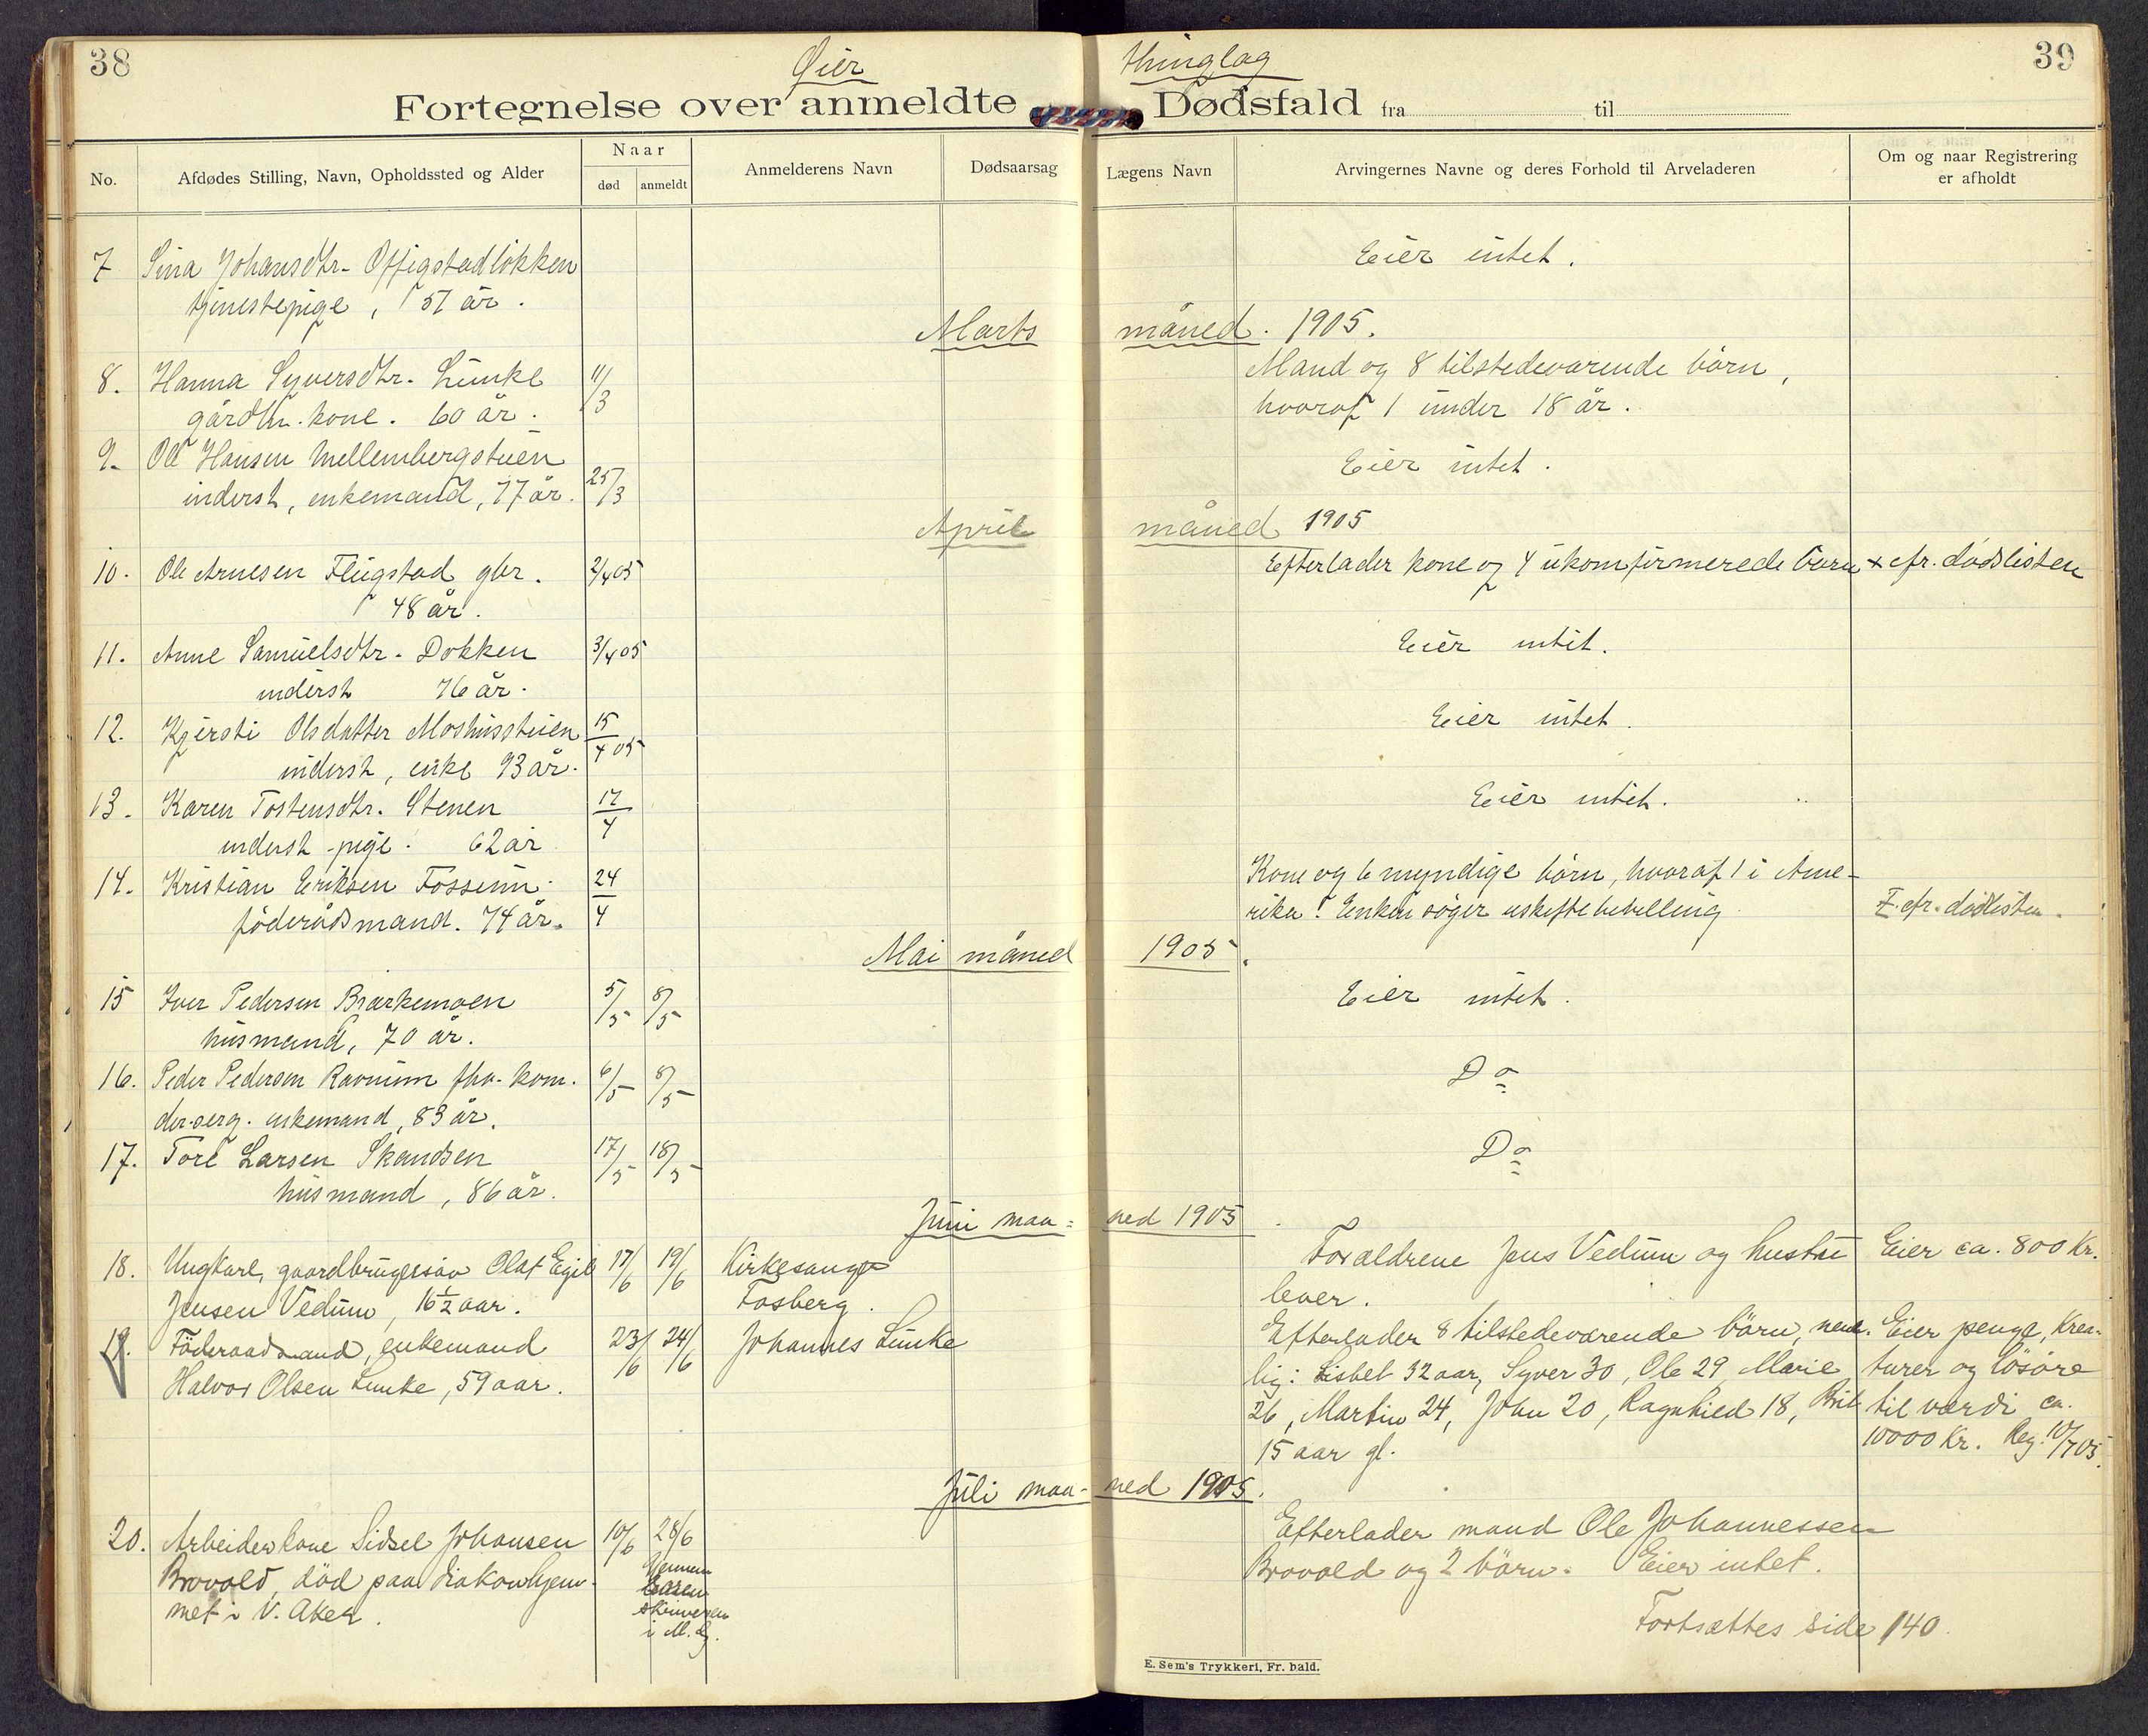 38
Øier
Fortegnelse over anmeldte
Thinglag
Dødsfald fra til
39
No.
Afdødes Stilling, Navn, Opholdssted og Alder
Naar
død
anmeldt
Anmelderens Navn
Dødsaarsag
Lægens Navn
Arvingernes Navne og deres Forhold til Arveladeren
Om og naar Registrering
er afholdt
7 Sina Johansdtr. Offigstadløkken Eier intet.
tjenestepige, 57 år.
Marts måned. 1905.
8. Hanna Syversdtr. Lunke 11/3 Mand og 8 tilstedeværende børn,
gårdbr. kone. 60 år. hvoraf 1 under 18 år.
9. Ole Hansen Mellembergstuen 25/3 Eier intet.
inderst, enkemand, 77 år.
April måned 1905
10. Ole Arnesen Flugstad gbr. 2/4 05 Efterlader kone og 4 ukonfirmerede børn + cfr. dødslisten
48 år.
11. Anne Samuelsdtr. Dokken 3/4 05 Eier intet.
inderst 76 år.
12. Kjersti Olsdatter Moshusstuen 15/4 05 Eier intet.
inderst, enke 93 år.
13. Karen Tostensdtr. Stenen 17/4 Eier intet.
inderst pige. 62 år
14. Kristian Eriksen Fossum 24/4 Kone og 6 myndige børn, hvoraf 1 i Ame-
føderådsmand. 74 år. rika. Enken søger uskiftebevilling cfr. dødlisten.
Mai måned 1905.
15 Iver Pedersen Bjørkemoen 5/5 8/5 Eier intet.
husmand, 70 år.
16. Peder Pedersen Ravnum fhv. kom. 6/5 8/5 Do
der-serg. enkemand, 83 år.
17. Tore Larsen Skandsen 17/5 18/5 Do
husmand, 86 år.
Juni maa= ned 1905
18. Ungkarl, gaardbrugersøn Olaf Egil 17/6 19/6 Kirkesanger Forældrene Jens Vedum og hustru Eier ca. 800 Kr.
Jensen Vedum, 16 1/2 aar. Fosberg. lever.
19. Føderaadsmand, enkemand 23/6 24/6 Johannes Lunke Efterlader 8 tilstedeværende børn, nem- Eier penge, krea-
Halvor Olsen Lunke, 59 aar. lig: Lisbet 32 aar, Syver 30, Ole 29, Marie turer og løsøre
26, Martin 24, John 20, Ragnhild 18, Brit til værdi ca.
15 aar gl. 10000 Kr. Reg. 10/7 05.
Juli maa- ned 1905.
20. Arbeiderkone Sidsel Johansen 10/6 28/6 Efterlader mand Ole Johannessen
Brovold, død paa diakonhjem- Gjennem Brovold og 2 børn. Eier intet.
met i V. Aker. skriveren
i M. G.
Fortsættes side 140.
E. Sem's Trykkeri, Fr. hald.